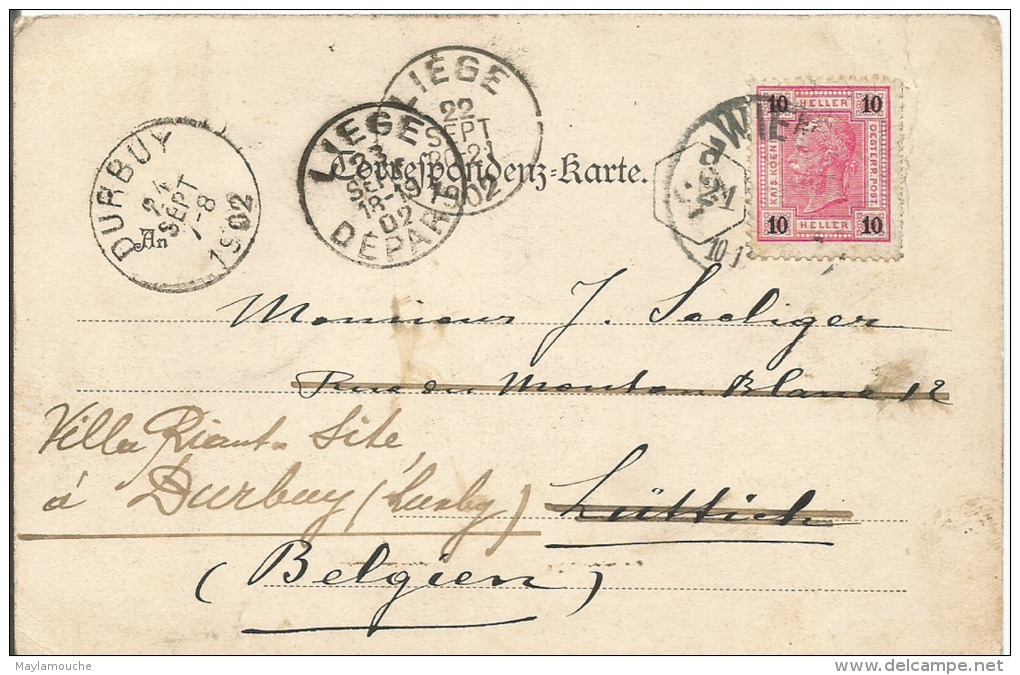 LIÈGE
22
SEPT
20-21
1902
LIÈGE
23
SEPT
18-19
02
DÉPART
DURBUY
24
SEPT
7-8
1902
WIEN
10 HELLER 10
KAIS. KOENIGL.
OESTERR. POST
10 HELLER 10
Correspondenz-Karte.
An
Monsieur J. Seeliger
Rue du Mouton Blanc 12
Villa Riant-Site
à Durbuy (Luxbg) Lüttich
(Belgien)
Maylamouche
www.delcampe.net